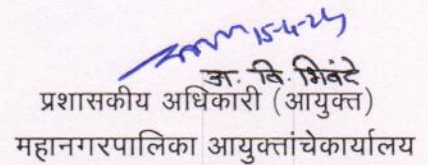 15-4-24
अ. वि. भिवंदे
प्रशासकीय अधिकारी (आयुक्त)
महानगरपालिका आयुक्तांचेकार्यालय